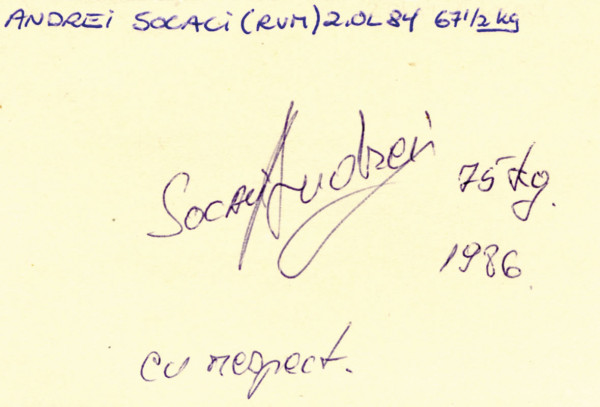 ANDREI SOCACI (RUM) 2.OL 84 67 1/2 kg
Socaci Andrei 75 kg.
1986.
cu respect.